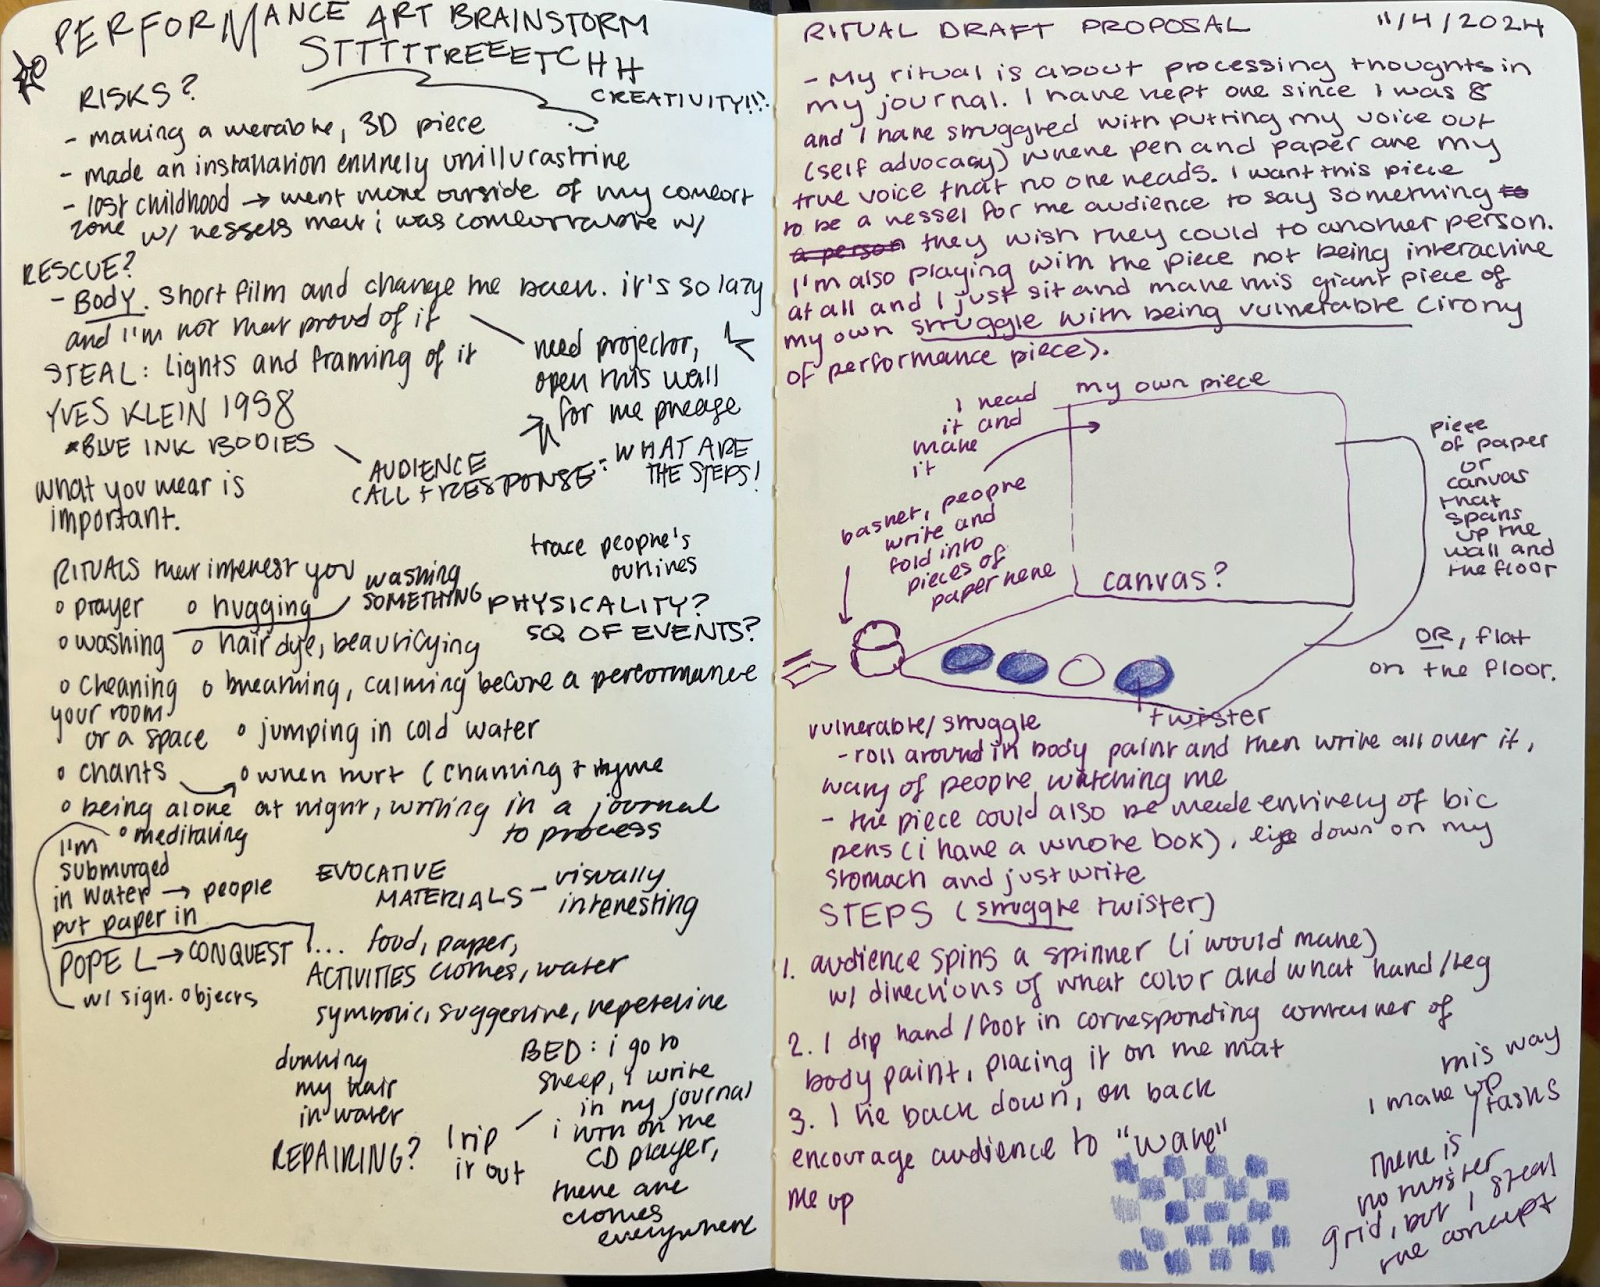 PERFORMANCE ART BRAINSTORM
STTTTTREEEETCHH
CREATIVITY!!!
RISKS?
- making a werable, 3D piece
- made an installation entirely unillurastrine
- lost childhood → went more outside of my comfort
zone w/ vessels that i was comforrable w/
RESCUE?
- BODY. Short film and change the
it's so lazy
and i'm not that proud of it
STEAL: lights and framing of it
need projector,
open this wall
for the
YVES KLEIN 1958
*BLUE INK BODIES
AUDIENCE
CALL + RESPONSE: WHAT ARE
THE STEPS!
what you wear is
important.
trace people's
outlines
RITUALS that interest you
washing
SOMETHING
• prayer
• hugging
PHYSICALITY?
SQ OF EVENTS?
• washing
• hair dye, beautifying
• cleaning
your room
or a space
• breathing, calming before a performance
• jumping in cold water
• chants
• when hurt (chanting + rhyme
• being alone at night, writing in a journal
to process
• meditating
I'm
submurged
in water → people
put paper in
EVOCATIVE
MATERIALS - visually
interesting
POPE L → CONQUEST
w/ sign. objects
... food, paper,
ACTIVITIES clothes, water
symbolic, suggestive, repetetive
dunking
my hair
in water
BED: i go to
sleep, i write
in my journal
i turn on the
CD player,
there are
clothes
everywhere
REPAIRING?
I rip
it out
RITUAL DRAFT PROPOSAL
11/4/2024
- My ritual is about processing thoughts in
my journal. I have kept one since I was 8
and I have struggled with putting my voice out
(self advocacy) where pen and paper are my
true voice that no one reads. I want this piece
to be a vessel for the audience to say something to
a person they wish they could to another person.
I'm also playing with the piece not being interactive
at all and I just sit and make this giant piece of
my own struggle with being vulnerable (irony
of performance piece).
I read
it and
make
it
my own piece
piece
of paper
or
canvas
that
spans
up the
wall and
the floor
basket, people
write and
fold into
pieces of
paper here
canvas?
OR, flat
on the floor.
twister
vulnerable/struggle
- roll around in body paint and then write all over it,
wary of people watching me
- the piece could also be made entirely of bic
pens (i have a whole box), lie down on my
stomach and just write
STEPS (struggle twister)
1. audience spins a spinner (i would make)
w/ directions of what color and what hand/leg
2. I dip hand/foot in corresponding container of
body paint, placing it on the mat
3. I lie back down, on back
encourage audience to "wake"
me up
this way
I make up
tasks
there is
no twister
grid, but I steal
the concept